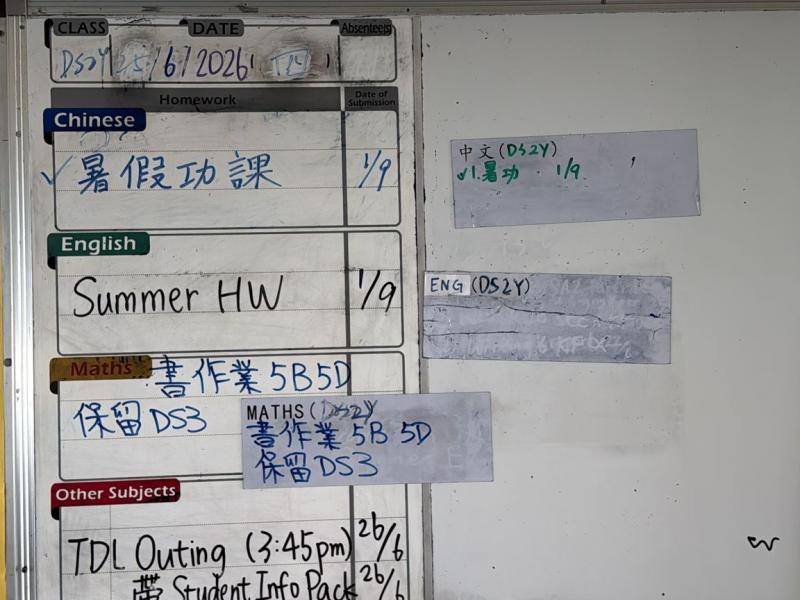 CLASS DATE Absentee(s)
DS2Y 25/6/2026
Homework Date of Submission
Chinese
✓暑假功課 1/9
English
Summer HW 1/9
Maths 書作業 5B 5D
保留 DS3
Other Subjects
TDL Outing (3:45pm) 26/6
帶 Student Info Pack 26/6
中文(DS2Y)
✓1.暑功 1/9
ENG (DS2Y)
MATHS (DS2Y)
書作業 5B 5D
保留 DS3